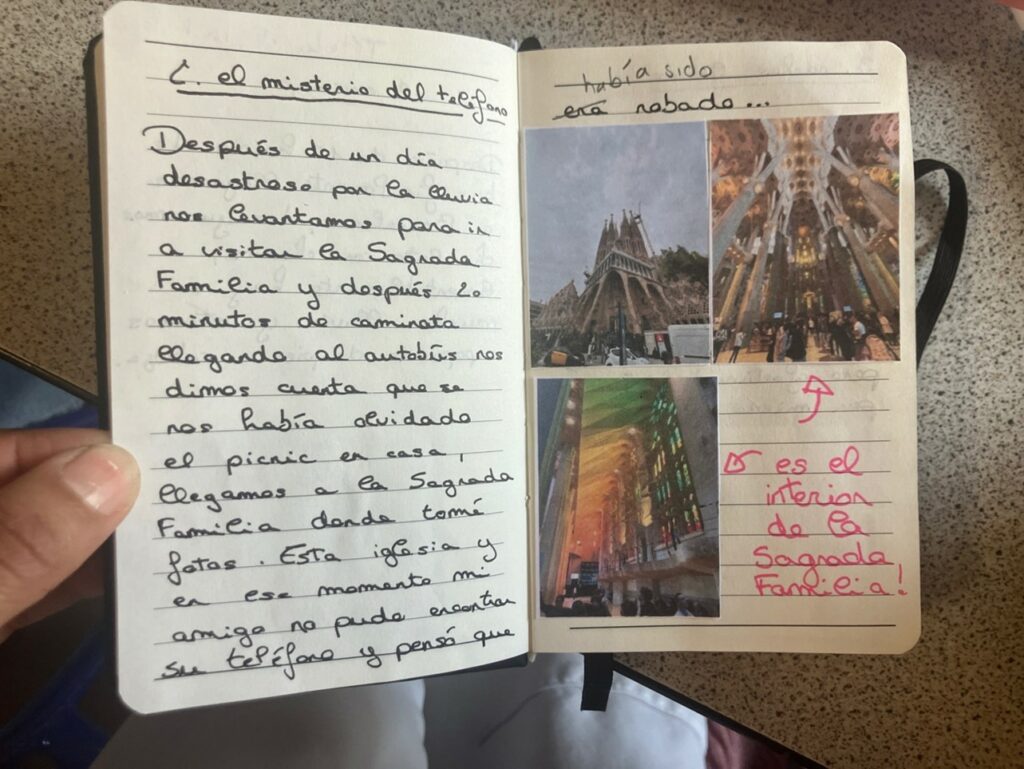 2. el misterio del teléfono
Después de un día
desastroso por la lluvia
nos levantamos para ir
a visitar la Sagrada
Familia y después 20
minutos de caminata
llegando al autobús nos
dimos cuenta que se
nos había olvidado
el picnic en casa,
llegamos a la Sagrada
Familia donde tomé
fotos. Esta iglesia y
en ese momento mi
amigo no pudo encontrar
su teléfono y pensó que
había sido
era robado...
es el
interior
de la
Sagrada
Familia!